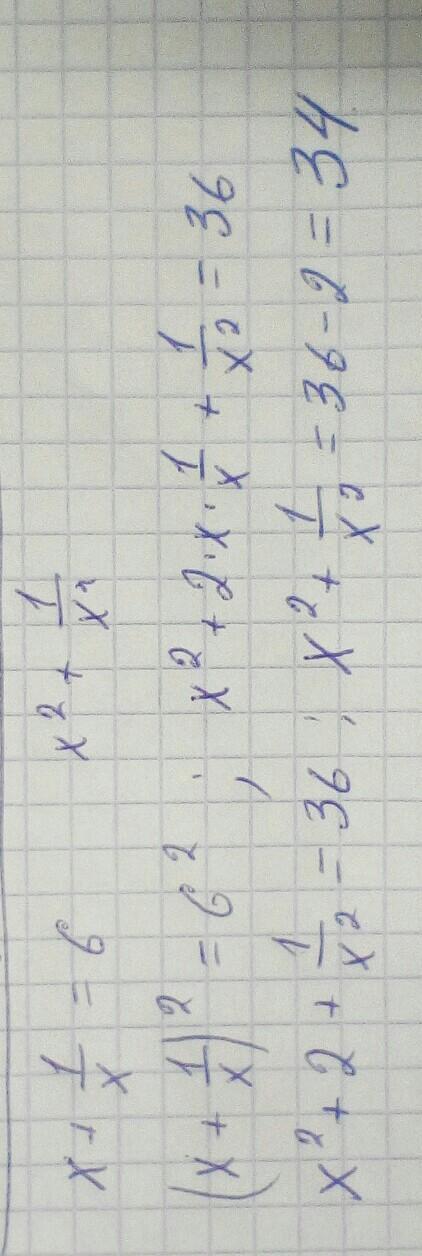 x + 1/x = 6 x² + 1/x²
(x + 1/x)² = 6² ; x² + 2·x·1/x + 1/x² = 36
x² + 2 + 1/x² = 36 ; x² + 1/x² = 36 - 2 = 34